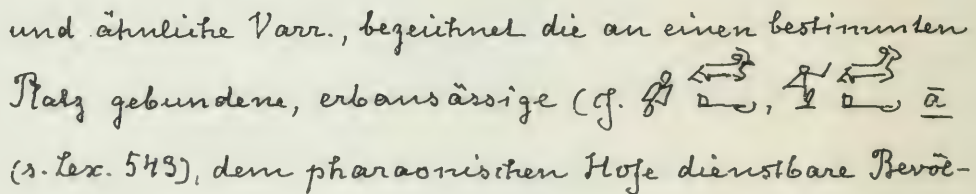 und ähnliche Varr., bezeichnet die an einen bestimmten
Platz gebundene, erbansässige (cf.
(s. Lex. 549), dem pharaonischen Hofe dienstbare Bevöl-